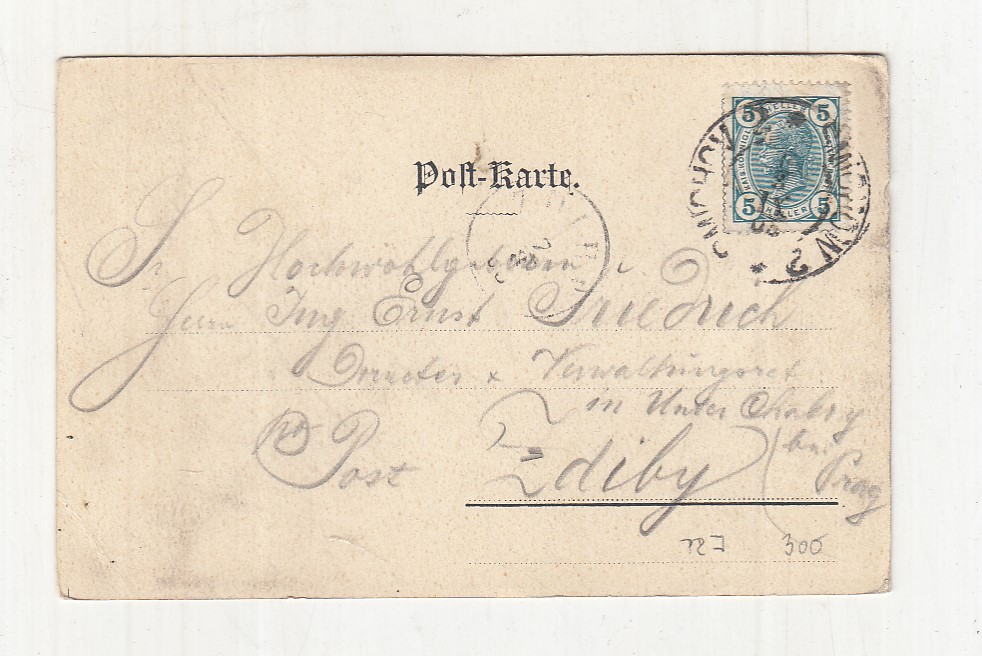 Post-Karte.
5 HELLER 5
5 HELLER 5
SMICHOV SMICHOW 2
Sr. Hochwohlgeboren
Herrn Ing Ernst Friedrich
Director & Verwaltungsrat
in Unter Chabry
bei
Post Zdiby Prag
127 300